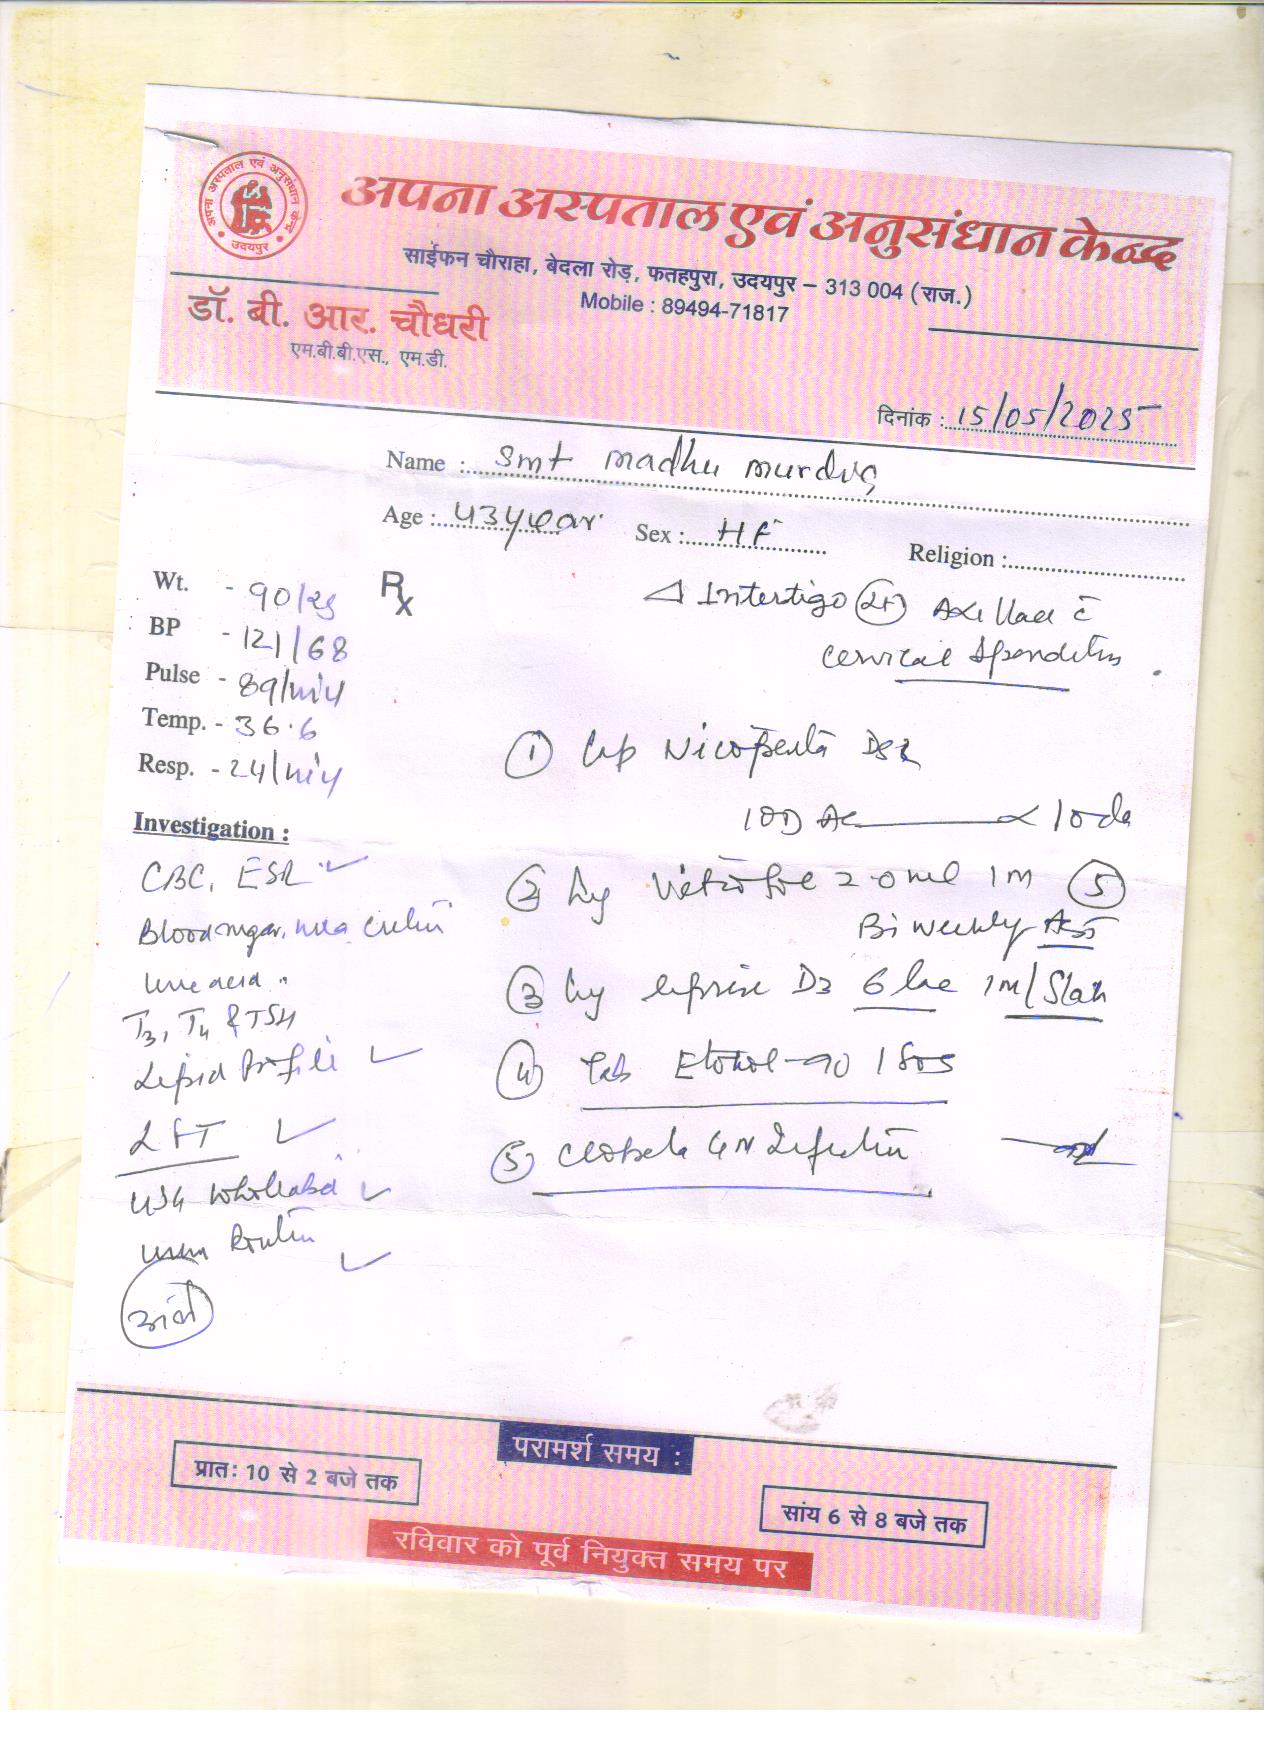 अपना अस्पताल एवं अनुसंधान केन्द्र
उदयपुर
अपना अस्पताल एवं अनुसंधान केन्द्र
साईफन चौराहा, बेदला रोड़, फतहपुरा, उदयपुर – 313 004 (राज.)
Mobile : 89494-71817
डॉ. बी. आर. चौधरी
एम.बी.बी.एस., एम.डी.
दिनांक : 15/05/2025
Name : Smt madhu
Age : 43 year Sex : HF Religion :
Wt. - 90/kg
BP - 121/68
Pulse - 89/min
Temp. - 36.6
Resp. - 24/min
Rx
Δ Intertigo Axillae c̄
cervical
① Cap DSR
1 OD AC 10 da
② Inj 2.0 ml IM ⑤
Bi weekly
③ Inj D3 6 lac IM/Stat
④ Tab -90 1 BDS
⑤ GN
Investigation :
CBC, ESR
Blood sugar,
Uric acid
T3, T4 & TSH
Lipid Profile
LFT
USG whole abd
Routine
परामर्श समय :
प्रातः 10 से 2 बजे तक
सांय 6 से 8 बजे तक
रविवार को पूर्व नियुक्त समय पर